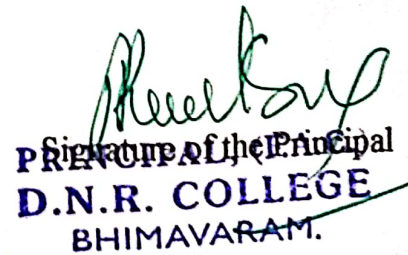 Signature of the Principal
PRINCIPAL, (F.A.C)
D.N.R. COLLEGE
BHIMAVARAM.